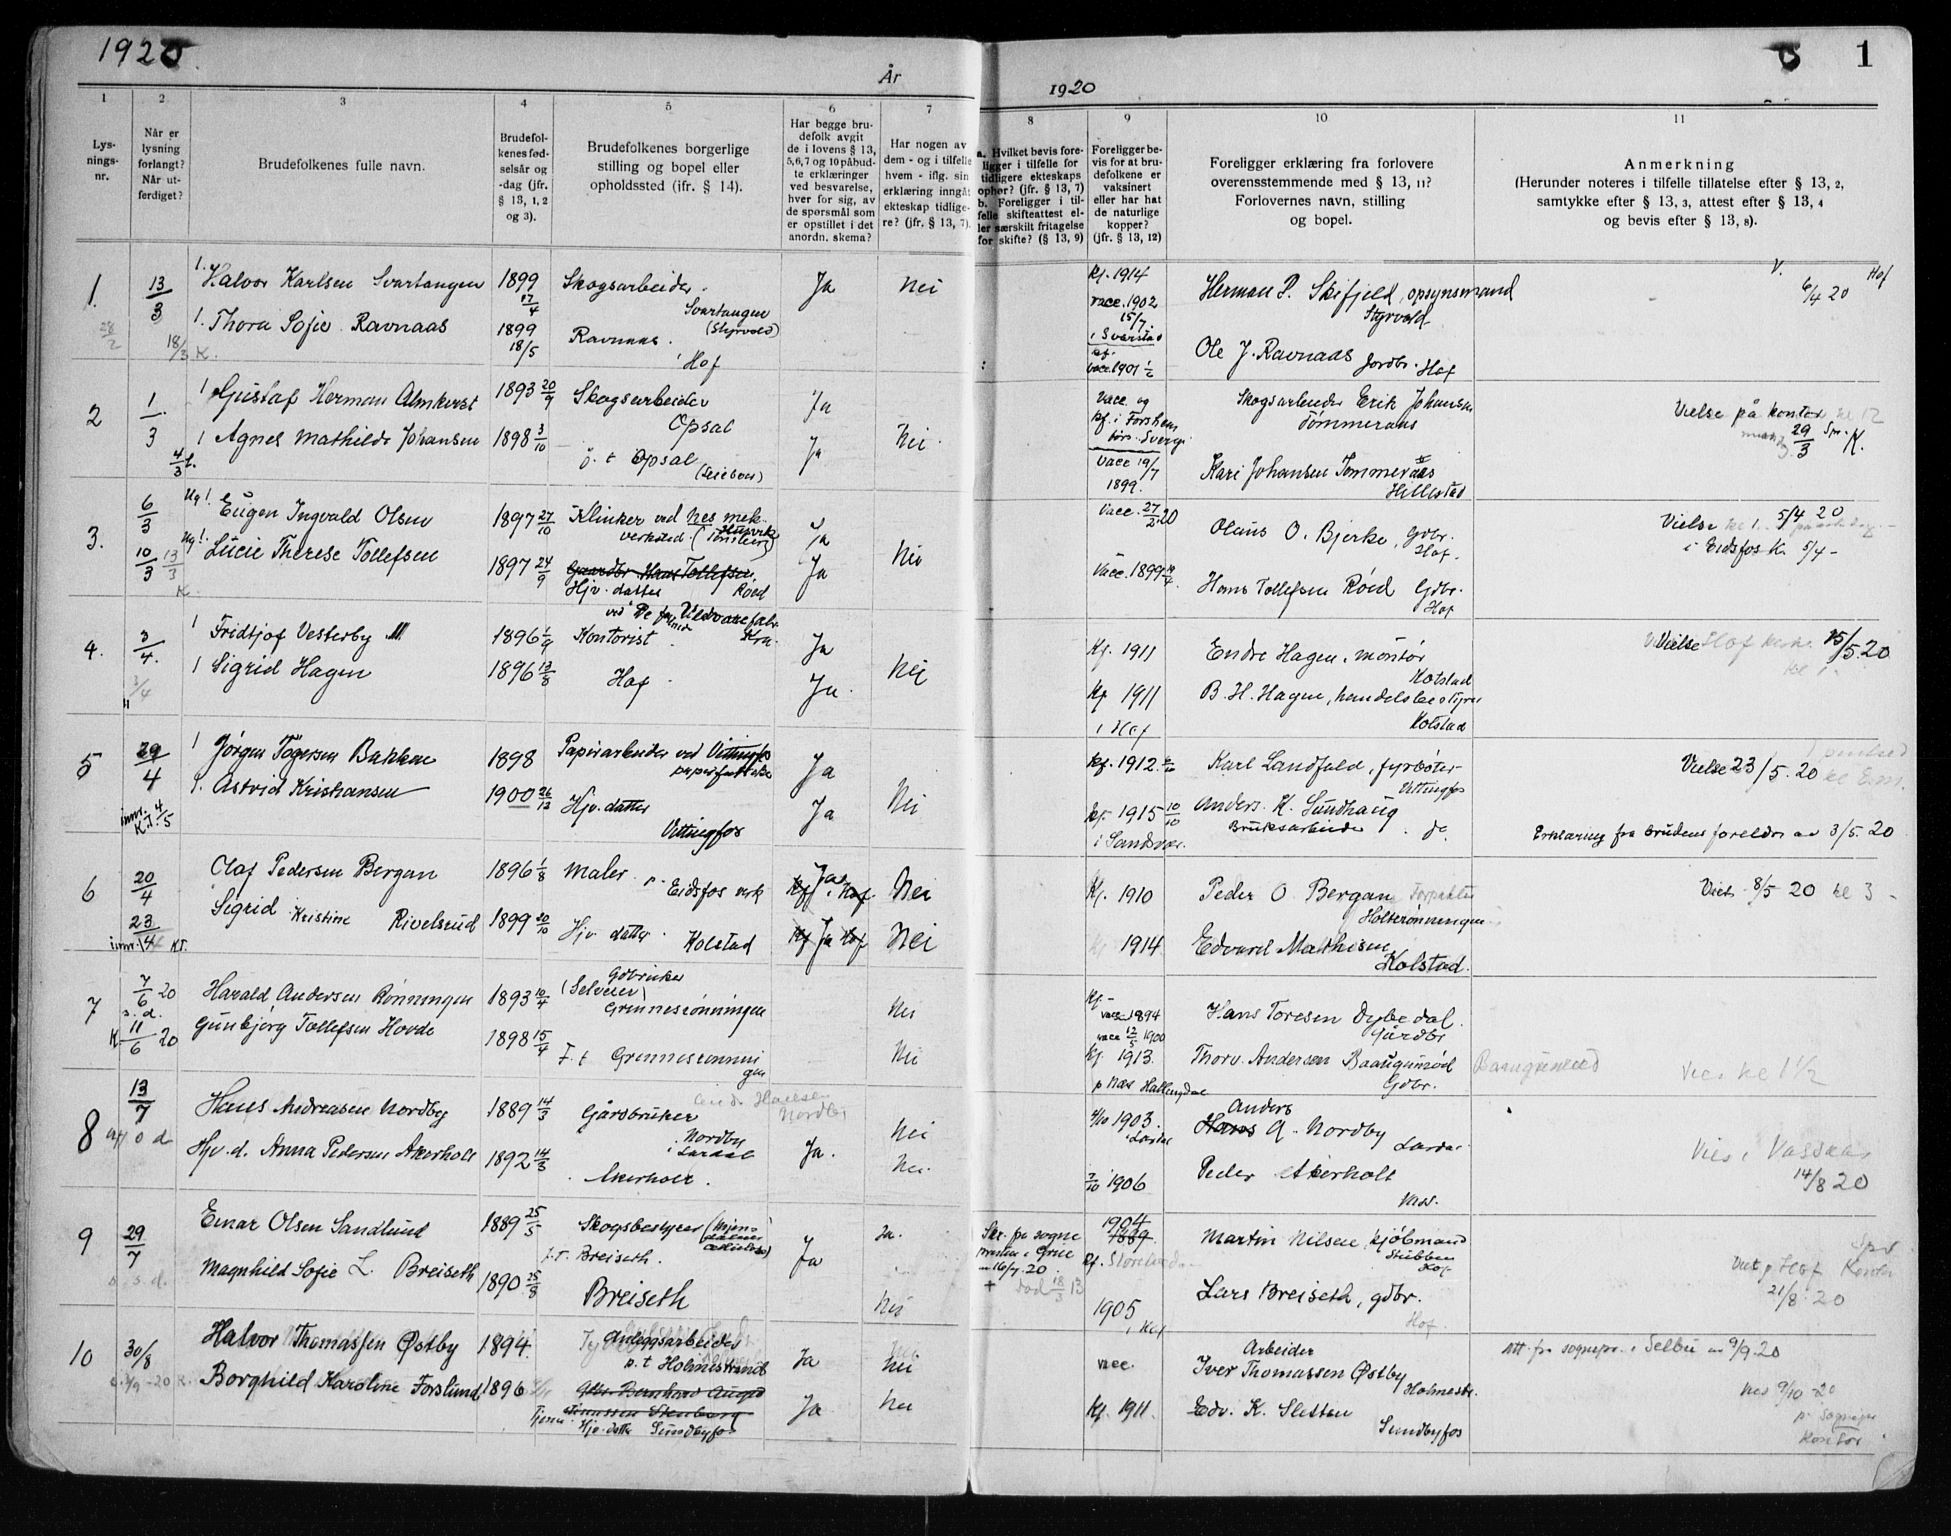 1920
År
1920
1
1
2
3
4
5
6
7
8
9
10
11
Lys-
nings-
nr.
Når er
lysning
forlangt?
Når ut-
ferdiget?
Brudefolkenes fulle navn.
Brudefol-
kenes fød-
selsår og
-dag (jfr.
§ 13, 1, 2
og 3).
Brudefolkenes borgerlige
stilling og bopel eller
opholdssted (ifr. § 14).
Har begge bru-
defolk avgit
de i lovens § 13,
5, 6, 7 og 10 påbud-
te erklæringer
ved besvarelse,
hver for sig, av
de spørsmål som
er opstillet i det
anordn. skema?
Har nogen av
dem - og i tilfelle
hvem - iflg. sin
erklæring inngåt
ekteskap tidlige-
re? (jfr. § 13, 7).
a. Hvilket bevis fore-
ligger i tilfelle for
tidligere ekteskaps
ophør? (jfr. § 13, 7)
b. Foreligger i til-
felle skifteattest el-
ler særskilt fritagelse
for skifte? (§ 13, 9)
Foreligger be-
vis for at bru-
defolkene er
vaksinert
eller har hat
de naturlige
kopper?
(jfr. § 13, 12)
Foreligger erklæring fra forlovere
overensstemmende med § 13, 11?
Forlovernes navn, stilling
og bopel.
Anmerkning
(Herunder noteres i tilfelle tillatelse efter § 13, 2,
samtykke efter § 13, 3, attest efter § 13, 4
og bevis efter § 13, 8).
1. 13/3 1. Halvor Karlsen Svartangen 1899 17/4 Skogsarbeider Svartangen (Styrvold) Ja Nei Kf. 1914 vacc. 1902 15/7 i Svarstad Herman P. Skifjeld, opsynsmand Styrvold V. 6/4 20 Hof
28/2 18/3 K. 1. Thora Sofie Ravnaas 1899 18/5 Ravnaas i Hof vacc. 1901 Ole J. Ravnaas Jordbr. Hof
2 1/3 1 Gustaf Herman Almkvist 1893 20/9 Skogsarbeider Opsal Ja vacc og kf. i Forshem Sverige Skogsarbeider Erik Johansen Tømmeraas Vielse på kontor kl 12 29/3 K.
4/3 1 Agnes Mathilde Johansen 1898 3/10 Opsal Ja Nei vacc 19/7 1899. Kari Johansen Tømmeraas Hillestad
3. 6/3 Ug 1. Eugen Ingvald Olsen 1897 27/10 Klinker ved Nes mek. verksted (Tønsberg) Ja vacc. 27/2 20 Olaus O. Bjerke, Gdbr. Hof. Vielse kl 1. 5/4 20
10/3 13/3 K. Ug 1. Lucie Therese Tollefsen 1897 24/9 Gaardbr Hans Tollefsen Hjv. datter Røed Ja Nei Vacc. 1899 Hans Tollefsen Røed Gdbr. Hof i Eidsfos K. 5/4 -
4. 3/4. 1 Fridtjof Vesterby 1896 1/9 Kontorist Kra. Ja Kf. 1911 Endre Hagen, montør Kolstad Vielse Hof kirke 15/5.20
3/4 1 Sigrid Hagen 1896 13/8 Hof Ja. Nei Kf 1911 i Hof B. H. Hagen, handelsbestyrer Kolstad
5 29/4 1 Jørgen Togersen Bakken 1898 Papirarbeider ved Vittingfos papirfabrikk Ja kf. 1912. Karl Landfald, fyrbøter Vittingfos Vielse 23/5. 20
innr. 4/5 K.T. 1. Astrid Kristiansen 1900 26/12 Hjv. datter Vittingfos Ja Nei kf. 1915 10/10 i Sandsvær. Anders K. Sundhaug Bruksarbeider do Erklæring fra brudens foreldre av 3/5. 20
6 20/4 Olaf Pedersen Bergan 1896 1/8 Maler Eidsfos verk Ja Kf i Hof Nei Kf. 1910 Peder O Bergan Forpakter Holterønningen Viet 8/5 20 kl 3 -
23/4 innr. KT. Sigrid Kristine Rivelsrud 1899 30/10 Hjv datter Kolstad Kf Ja Hof Nei Kf 1914 Edvard Mathisen Kolstad.
7 7/6 20 s. d. Harald Andersen Rønningen 1893 10/4 Gdbruker (Selveier) Grennesrønningen Nei Kf. - vacc 1894 Hans Toresen Dybedal Gårdbr
K. 11/6 20 Gunbjørg Tollefsen Hovde 1898 15/4 F. t Grennesrønningen Nei vacc 12/5 1900 Kf. 1913 p Næs Hallingdal Thorv. Andersen Baaugumrød Gdbr. Baaugumrød Vies kl 1½
8 13/7 Hans Andreasen Nordby 1889 14/3 Gårdbruker Nordby i Lardal Hansen Nordby Nei 4/10 1903. i Lardal Anders Hans A. Nordby Lardal
Hjv. d. Anna Pedersen Akerholt 1892 14/3 Akerholt. Ja. Nei. 7/10 1906 Peder Akerholt Vass. Vies i Vassaas 14/8 20
9 29/7 Einar Olsen Sandlund 1889 25/5 Skogsbestyrer p.t. Breiseth. Ja Ja. Skr. fra sogneprest i Grue 16/7. 20. død 18/3 13 1904 1889 Kf. Martin Nilsen kjøbmand Stubben Hof
s. d. Magnhild Sofie L. Breiseth 1890 25/8 Breiseth Nei 1905 i Hof Lars Breiseth, gdbr. Hof. Viet p Hof Kontor 21/8 20
10 30/8 Halvor Thomassen Østby 1894 Anleggsarbeider p. t Holmestrand Ja Nei vacc. Arbeider Iver Thomassen Østby Holmestr. Att. fra sognepr. i Selbu av 9/9. 20
Borghild Karoline Forslund 1896 Gbr. Bernhard August Stenberg Hjv. datter Sundbyfos Ja Nei Kf. 1911. Edv. K. Sletten Sundbyfos Vies 9/10 - 20 p. Sognepr kontor